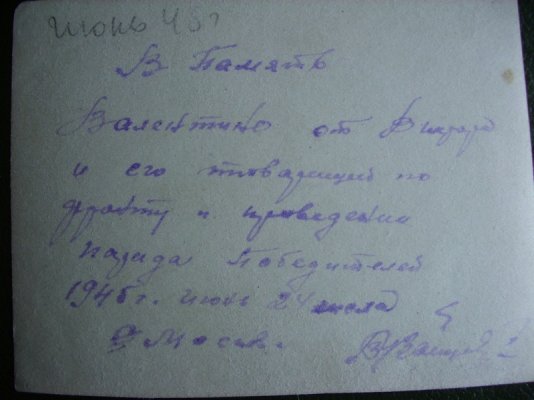 июнь 45 г
В Память
Валентино от Виктора
и его товарищей по
фронту и проведении
парада Победителей
1945 г. июнь 24 числа
г Москва.